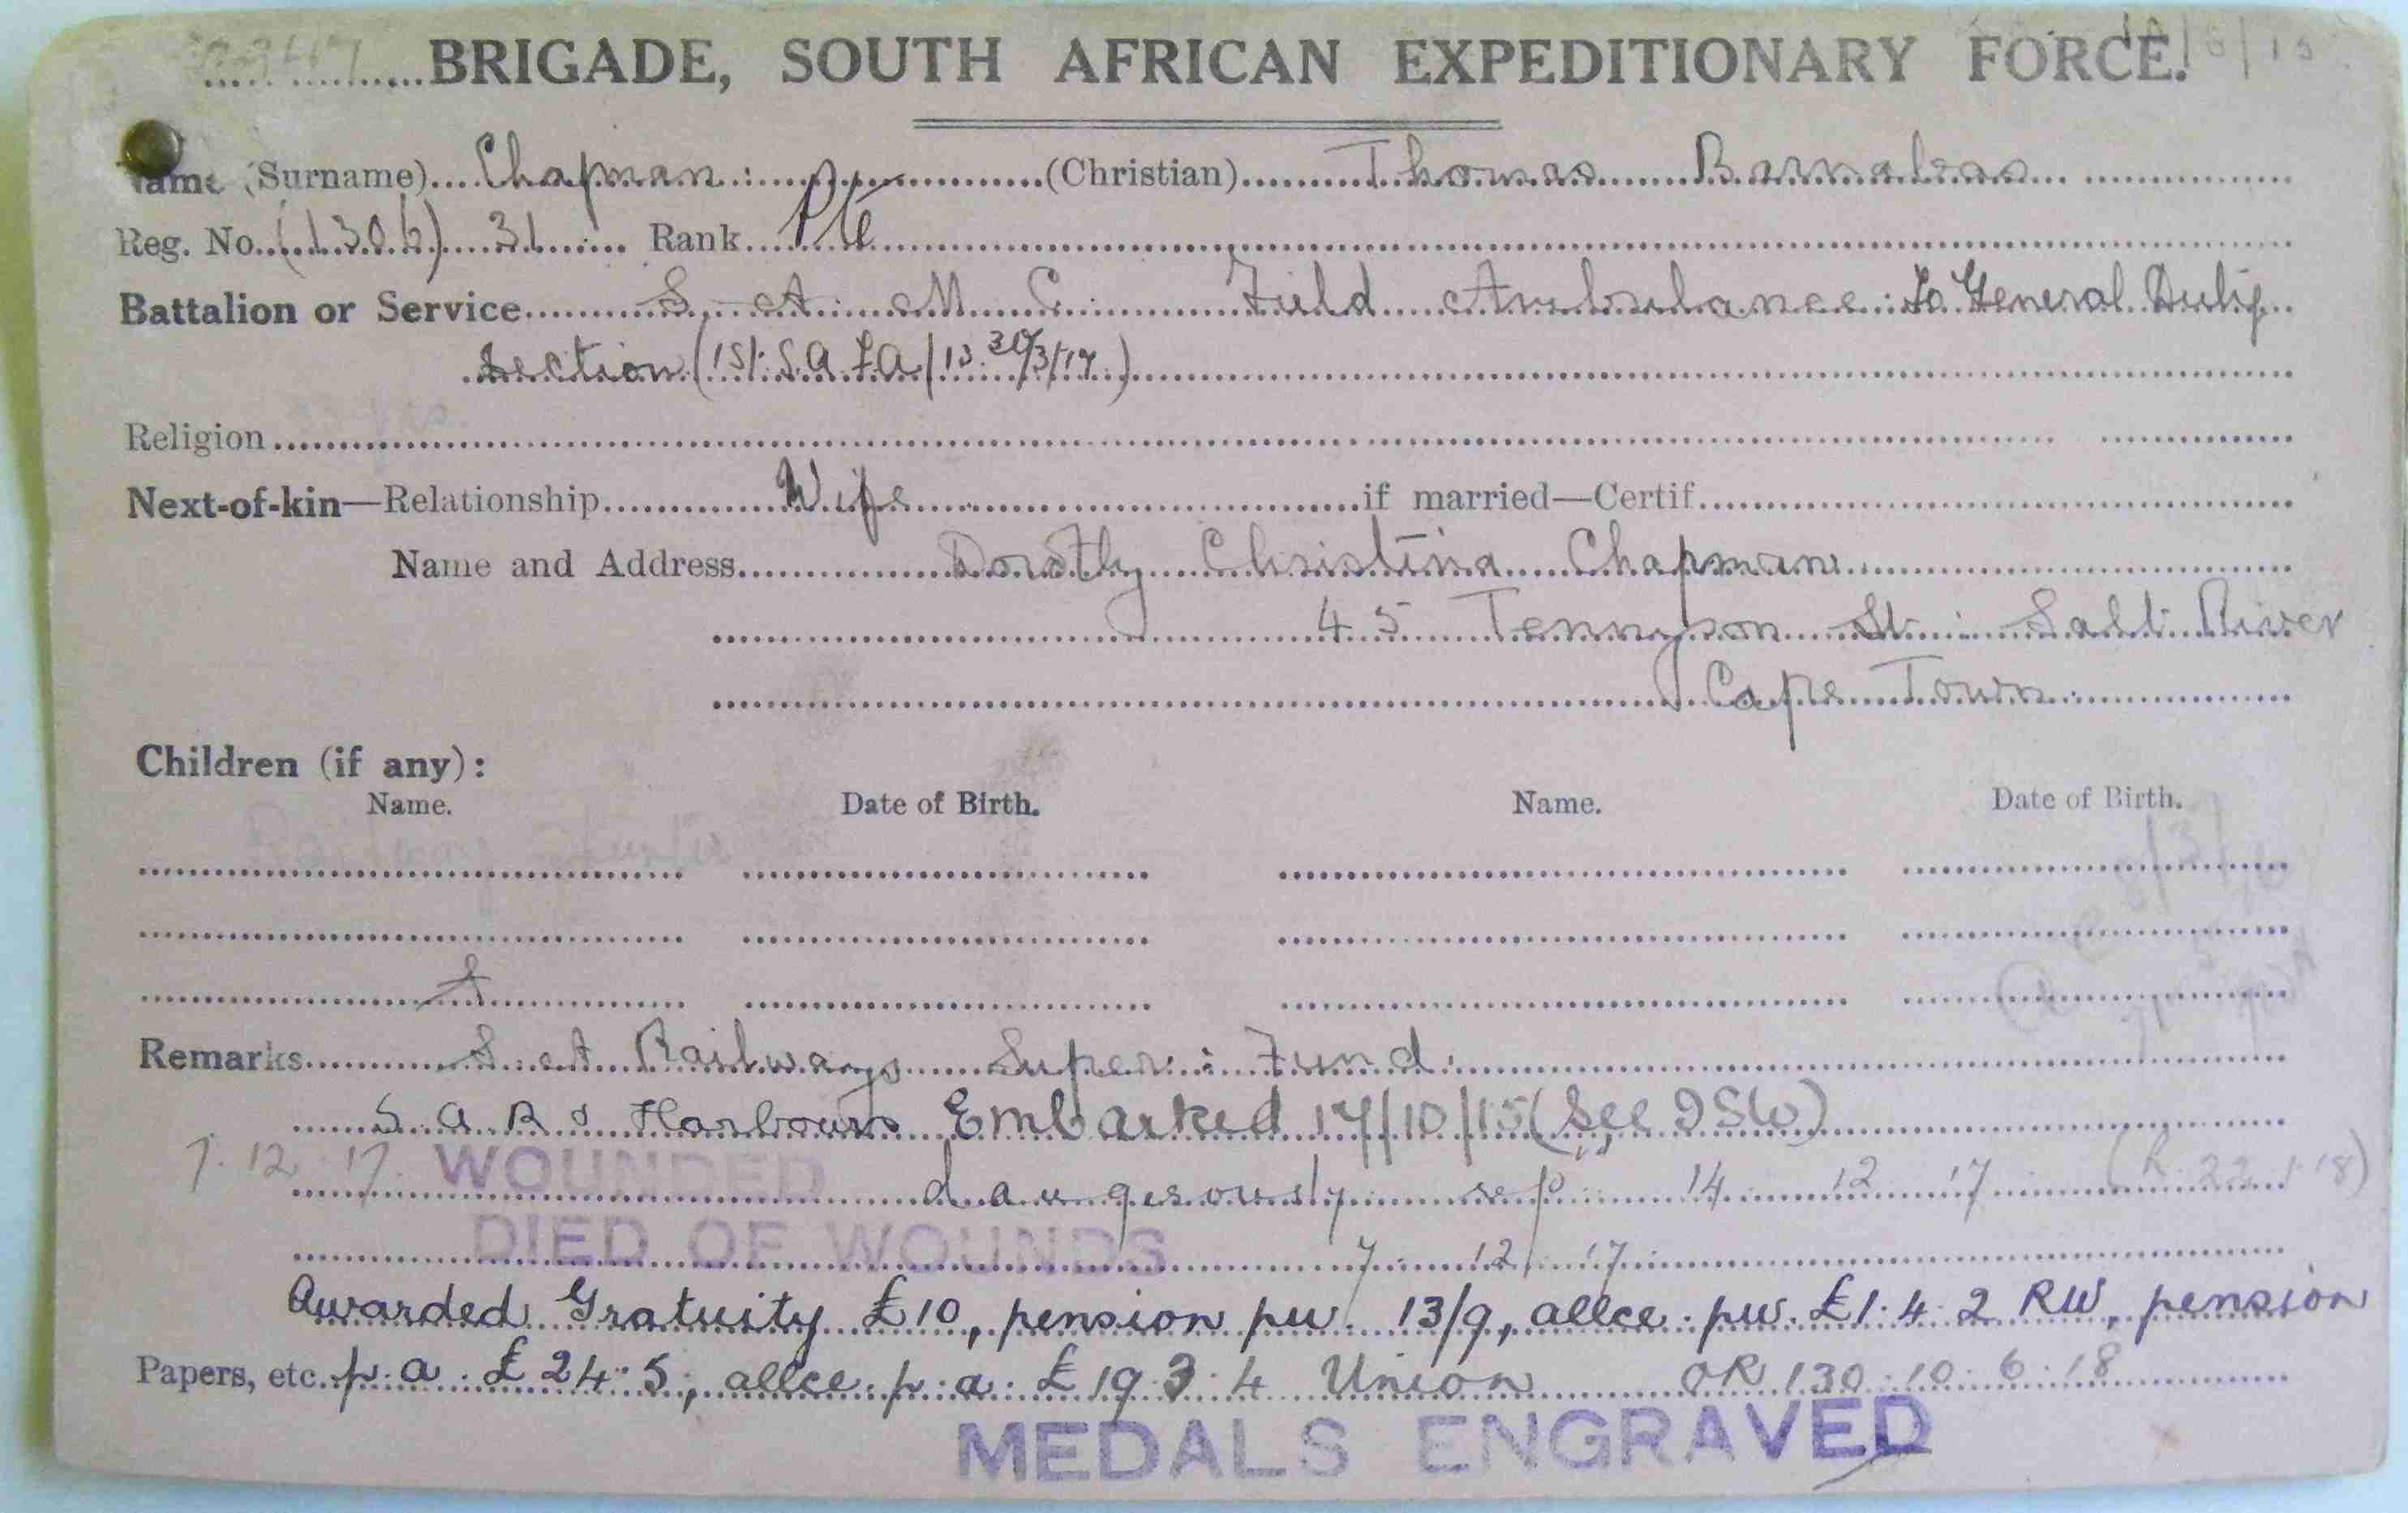 BRIGADE, SOUTH AFRICAN EXPEDITIONARY FORCE.
Name (Surname) Chapman: (Christian) Thomas Barnabas
Reg. No. (1306) 31 Rank Pte
Battalion or Service S. A. M. C. Field Ambulance: To General Duty
Section (1st S A F A / 13 30/3/17)
Religion
Next-of-kin—Relationship Wife if married—Certif.
Name and Address Dorothy Christina Chapman
45 Tennyson St: Salt River
Cape Town:
Children (if any):
Name. Date of Birth. Name. Date of Birth.
Remarks S. A Railways Super: Fund.
S. A. R & Harbours Embarked 17/10/15 (See
7. 12 17. WOUNDED dangerously rep 14 12 17 (R. 22 1 18)
DIED OF WOUNDS 7 12 17
Awarded Gratuity £10, pension pw. 13/9, allce. pw. £1. 4. 2 RW, pension
Papers, etc. p. a. £24. 5, allce. p. a. £19 3. 4 Union OR 130 10. 6. 18
MEDALS ENGRAVED